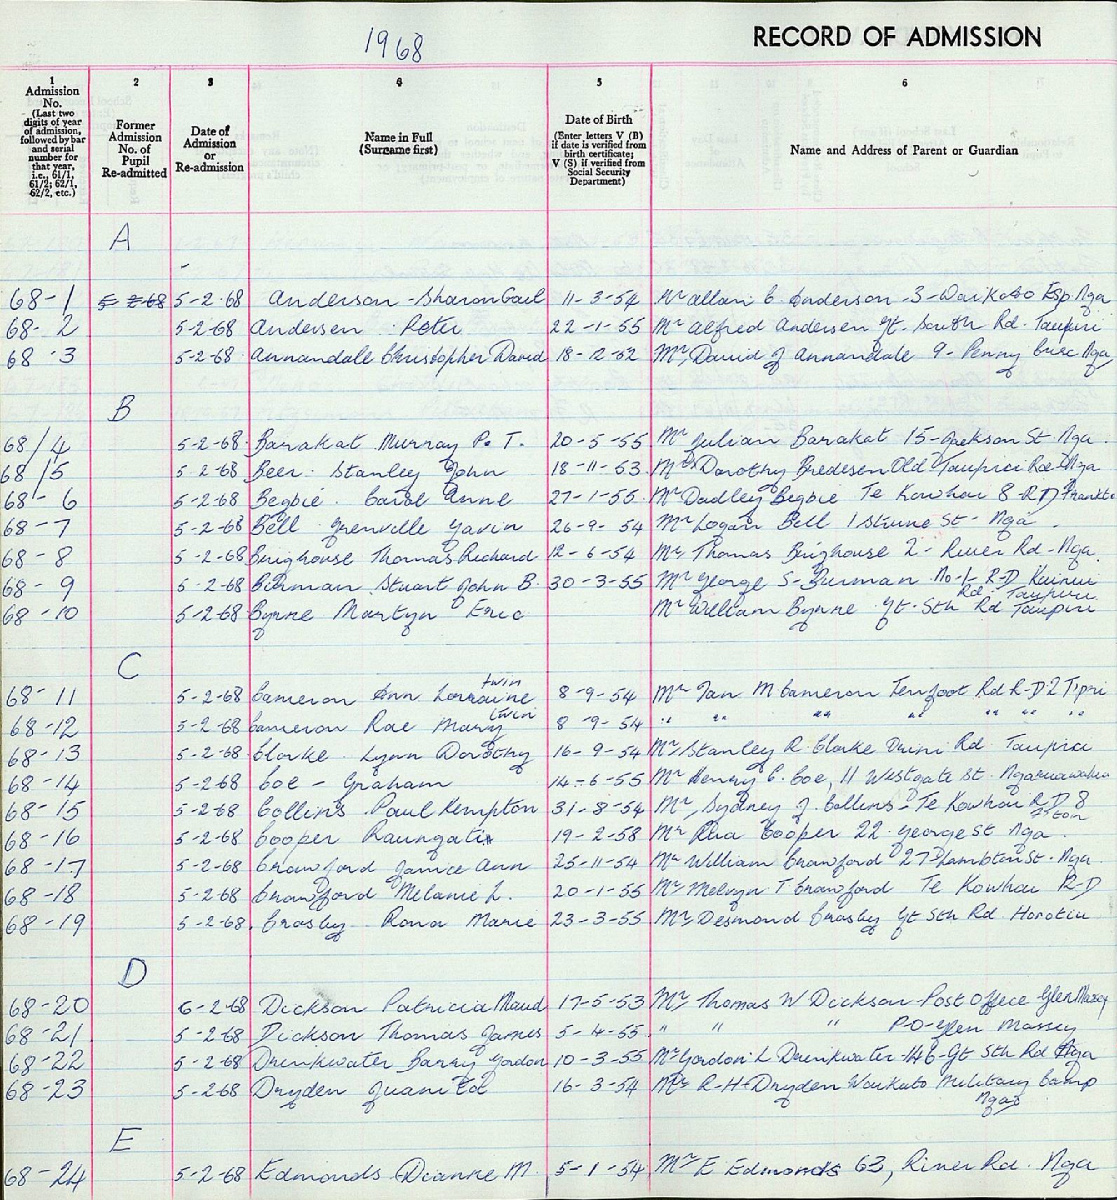 1968
RECORD OF ADMISSION
1 Admission No. (Last two digits of year of admission, followed by bar and serial number for that year, i.e., 61/1, 61/2; 62/1, 62/2, etc.)
2 Former Admission No. of Pupil Re-admitted
3 Date of Admission or Re-admission
4 Name in Full (Surname first)
5 Date of Birth (Enter letters V (B) if date is verified from birth certificate; V (S) if verified from Social Security Department)
6 Name and Address of Parent or Guardian
A
68-1 5-2-68 5-2-68 Anderson - Sharon Gail 11-3-54 Mr Allan C. Anderson - 3 - Waikato Esp Nga
68-2 5-2-68 Andersen Peter 22-1-55 Mr Alfred Andersen Gt. South Rd. Taupiri
68-3 5-2-68 Annandale Christopher David 18-12-52 Mr David J Annandale 9 - Penny Cresc Nga
B
68/4 5-2-68 Barakat Murray P. T. 20-5-55 Mr Julian Barakat 15 - Jackson St Nga.
68/5 5-2-68 Beer. Stanley John 18-11-53 Mrs Dorothy Bredesen Old Taupiri Rd - Nga
68-6 5-2-68 Begbie. Carol Anne 27-1-55 Mr Dudley Begbie Te Kowhai 8 - RD Frankton
68-7 5-2-68 Bell Grenville Gavin 26-9-54 Mr Logan Bell 1 St Nga.
68-8 5-2-68 Binghouse Thomas Richard 12-6-54 Mr Thomas Binghouse 2 - River Rd - Nga
68-9 5-2-68 Burman Stuart John B. 30-3-55 Mr George S - Burman No-1 R-D Kainui
Rd. Taupiri
68-10 5-2-68 Byrne Martyn Eric Mr William Byrne Gt. Sth Rd Taupiri
C
68-11 5-2-68 Cameron Ann Lorraine twin 8-9-54 Mr Ian M Cameron Tenfoot Rd R-D 2 Tpri
68-12 5-2-68 Cameron Rae Mary twin 8-9-54 " " " " " " "
68-13 5-2-68 Clarke Lynn Dorothy 16-9-54 Mr Stanley R. Clarke Rd Taupiri
68-14 5-2-68 Coe - Graham 14-6-55 Mr Henry C. Coe, 11 Westgate St. Ngaruawahia
68-15 5-2-68 Collins Paul Kempton 31-8-54 Mr Sydney J. Collins - Te Kowhai R-D 8
68-16 5-2-68 Cooper Raungatia 19-2-58 Mr Cooper 22 George St Nga.
68-17 5-2-68 Crawford Janice Ann 25-11-54 Mr William Crawford 27 - Lambton St. Nga.
68-18 5-2-68 Crawford Melanie L. 20-1-55 Mr Melvyn T Crawford Te Kowhai R-D
68-19 5-2-68 Crosby Rona Marie 23-3-55 Mr Desmond Crosby Gt Sth Rd Horotiu
D
68-20 6-2-68 Dickson Patricia Maud 17-5-53 Mr Thomas W Dickson - Post Office - Glen Massey
68-21 5-2-68 Dickson Thomas James 5-4-55 " " " P.O - Glen Massey
68-22 5-2-68 Drinkwater Barry Gordon 10-3-55 Mr Gordon L Drinkwater 146 - Gt Sth Rd Nga
68-23 5-2-68 Dryden Juanita 16-3-54 Mr R-H-Dryden Waikato Military Camp
Nga
E
68-24 5-2-68 Edmonds Dianne M. 5-1-54 Mr E Edmonds 63, River Rd. Nga